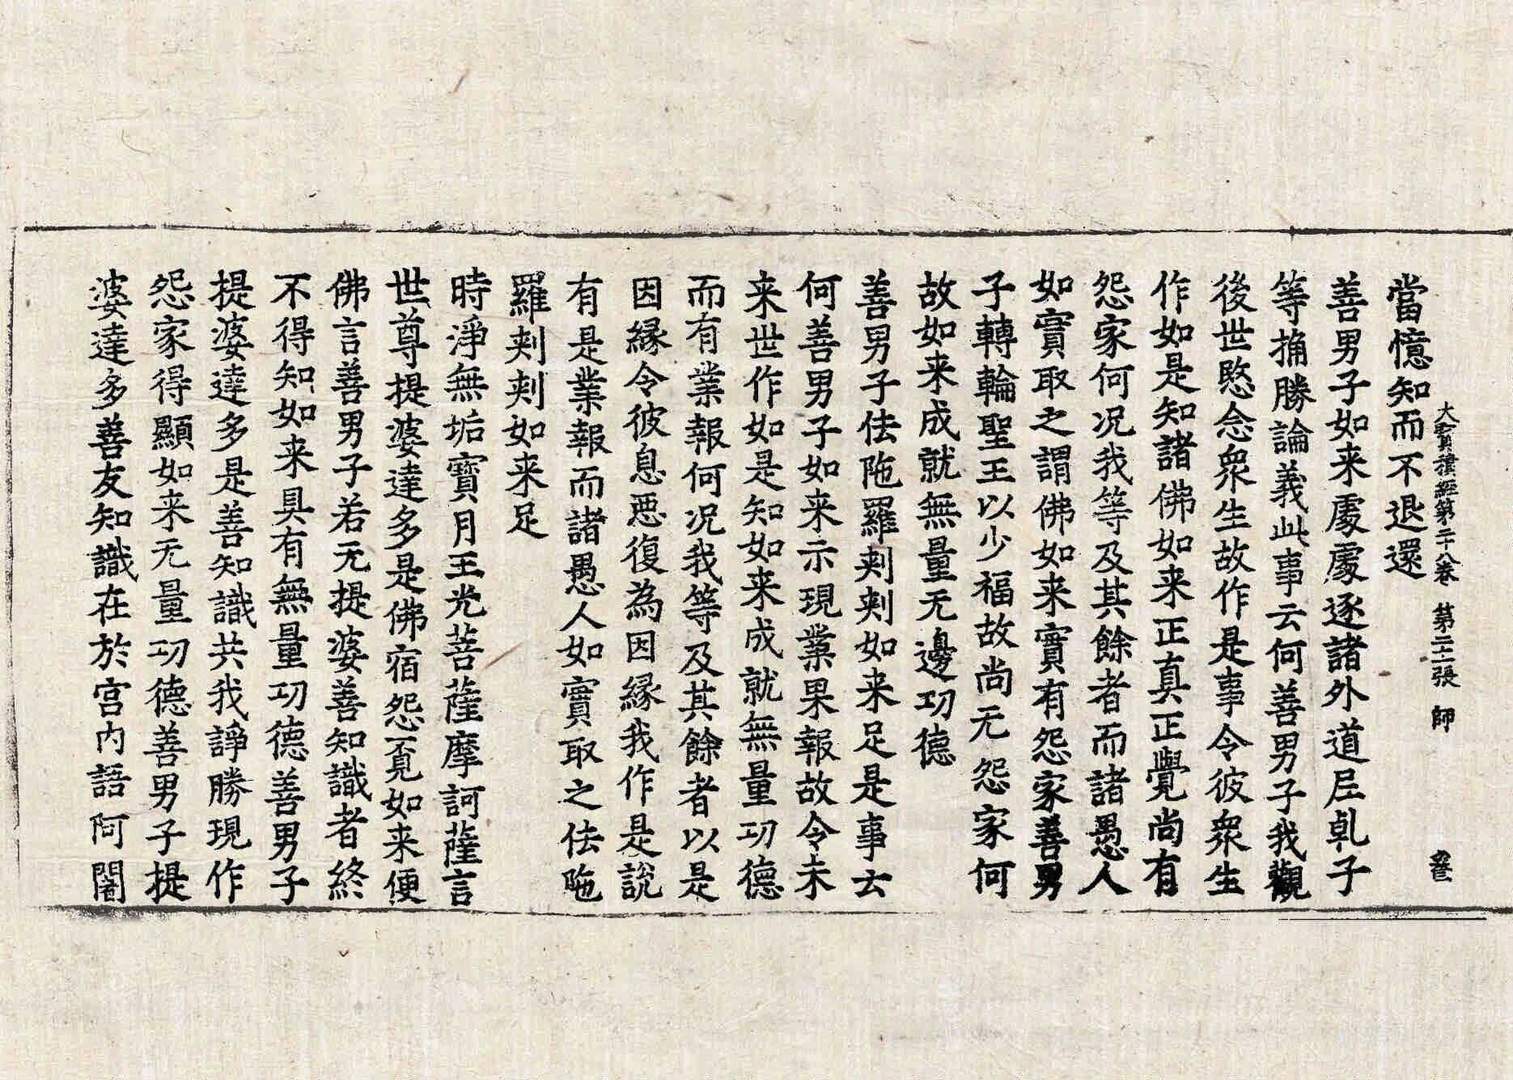 當憶知而不退還
大寶積經第二十八卷 第二十二張 師
善男子如来處處逐諸外道尼乹子
等捔勝論義此事云何善男子我觀
後世愍念衆生故作是事令彼衆生
作如是知諸佛如来正真正覺尚有
怨家何况我等及其餘者而諸愚人
如實取之謂佛如来實有怨家善男
子轉輪聖王以少福故尚无怨家何
故如来成就無量无邊功德
善男子佉陁羅刾刾如来足是事云
何善男子如来示現業果報故令未
来世作如是知如来成就無量功德
而有業報何况我等及其餘者以是
因縁令彼息惡復為因縁我作是說
有是業報而諸愚人如實取之佉陁
羅刾刾如来足
時淨無垢寶月王光菩薩摩訶薩言
世尊提婆達多是佛宿怨覔如来便
佛言善男子若无提婆善知識者終
不得知如来具有無量功德善男子
提婆達多是善知識共我諍勝現作
怨家得顯如来无量功德善男子提
婆達多善友知識在於宫内語阿闍